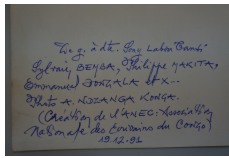 De g. à dte. Sony Labou Tansi
Sylvain BEMBA, Philippe MAKITA,
Emmanuel DONGALA et X...
Photo A. NDIANGA KONGA.
(Création de l'ANEC: Association
Nationale des Écrivains du Congo)
19.12.91